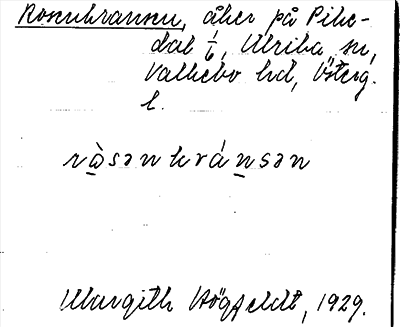 Rosenkransen, åker på Pike-
dal 1/6, Ulrika sn,
Valkebo hd, Österg.
l.
rò̲sənkrán̲sən
Margith Högfeldt, 1929.